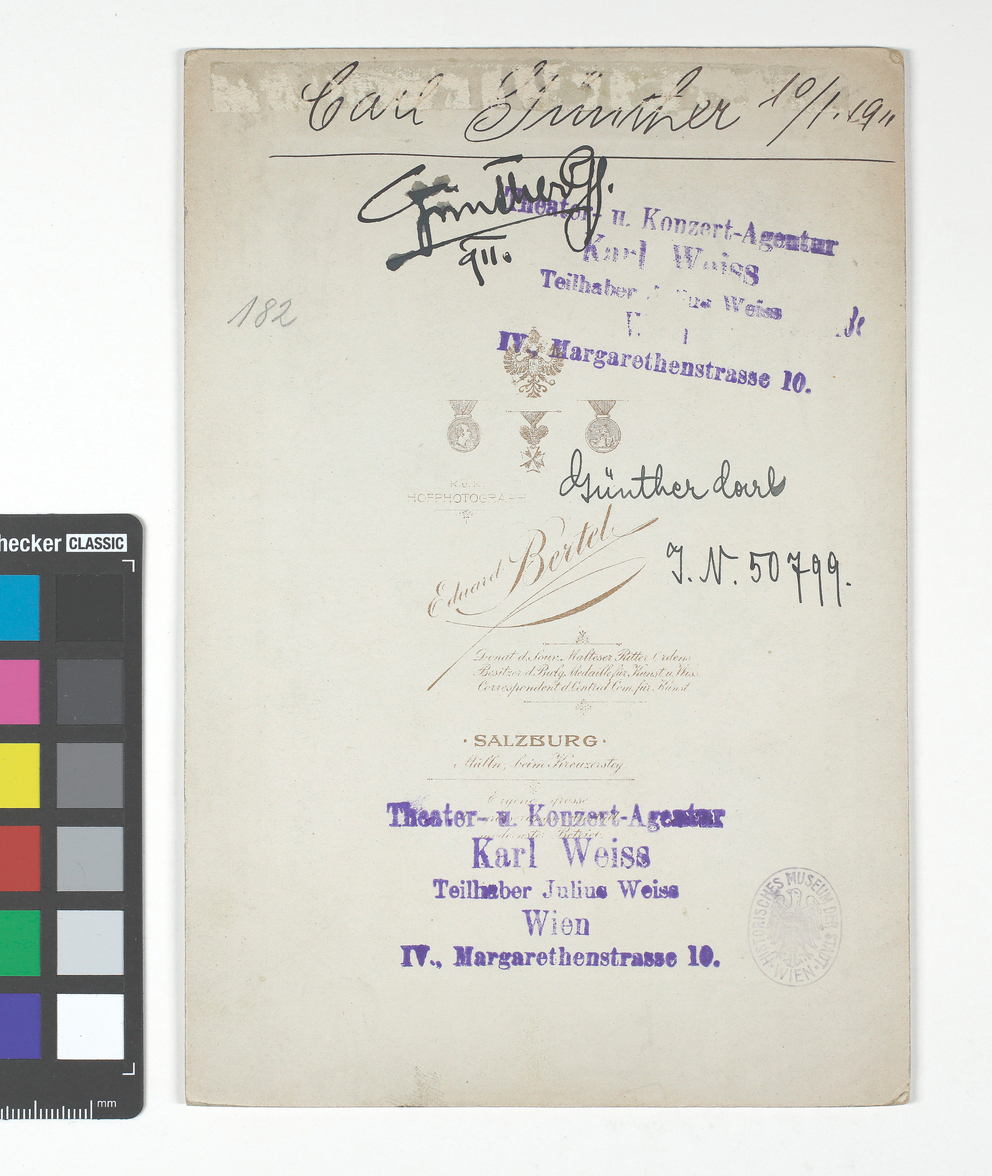 Carl Günther 10/1. 1911
Günther
911.
Theater- u. Konzert-Agentur
Karl Weiss
Teilhaber Weiss
IV., Margarethenstrasse 10.
182
K. u. K.
HOFPHOTOGRAPH
Günther Carl
Eduard Bertel
I. N. 50799.
Donat d. Souv. Malteser Ritter Ordens
Besitzer d. Bulg. Medaille für Kunst u. Wis.
Correspondent d. Central Com. für Kunst
· SALZBURG ·
Mülln, beim Kreuzersteg.
Eigene grosse
modernster Betrieb.
Theater- u. Konzert-Agentur
Karl Weiss
Teilhaber Julius Weiss
Wien
IV., Margarethenstrasse 10.
HISTORISCHES MUSEUM DER STADT WIEN
hecker CLASSIC
mm